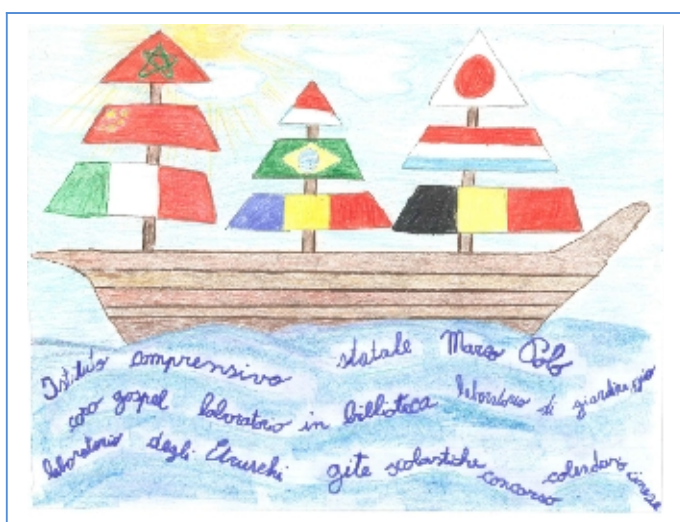 Istituto comprensivo statale Marco Polo
coro gospel laboratorio in billioteca laboratorio di giardinaggio
laboratorio degli Etruschi gite scolastiche concorso calendario cinese